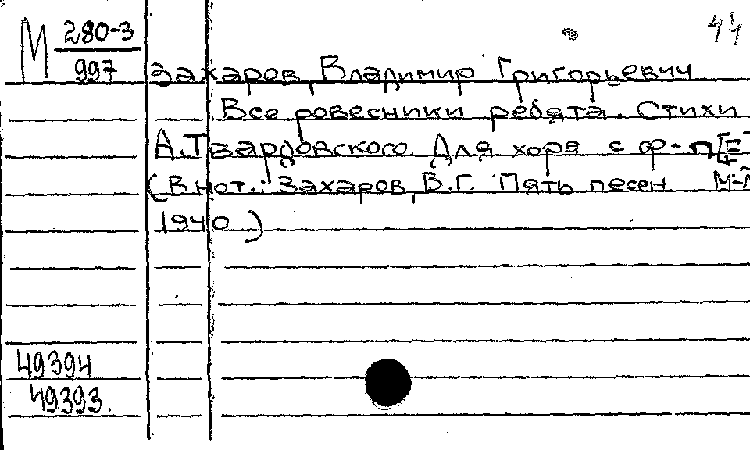 М 280-3
997
44
Захаров, Владимир Григорьевич
Все ровесники ребята. Стихи
А. Твардовского Для хора с ф-п
(В нот.: Захаров, В.Г. Пять песен М-Л
1940)
49394
49393.